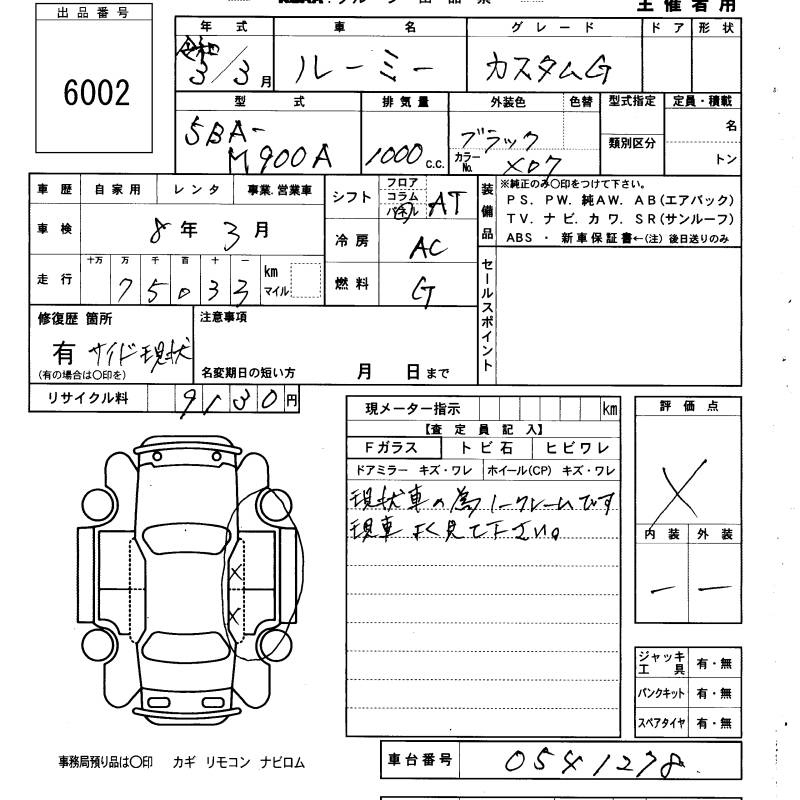 出品番号
6002
主催者用
年式 車名 グレード ドア 形状
令和 3/3月 ルーミー カスタムG
型式 排気量 外装色 色替 型式指定 定員・積載
5BA-M900A 1000 c.c. ブラック カラーNo. X07 類別区分 名 トン
車歴 自家用 レンタ 事業.営業車
車検 8年3月
走行 十万 万 千 百 十 一
75033 km マイル
シフト フロア コラム パネル AT
冷房 AC
燃料 G
装備品 ※純正のみ○印をつけて下さい。
PS. PW. 純AW. AB(エアバック)
TV. ナビ. カワ. SR(サンルーフ)
ABS ・ 新車保証書←(注) 後日送りのみ
セールスポイント
修復歴 箇所
有 サイド現状
(有の場合は○印を)
注意事項
名変期日の短い方 月 日まで
リサイクル料 9130円
現メーター指示 km
【査定員記入】
Fガラス トビ石 ヒビワレ
ドアミラー キズ・ワレ ホイール(CP) キズ・ワレ
現状車の為ノークレームです
現車よく見て下さい。
評価点
X
内装 外装
― ―
X
X
ジャッキ工具 有・無
パンクキット 有・無
スペアタイヤ 有・無
事務局預り品は○印 カギ リモコン ナビロム
車台番号 0541278